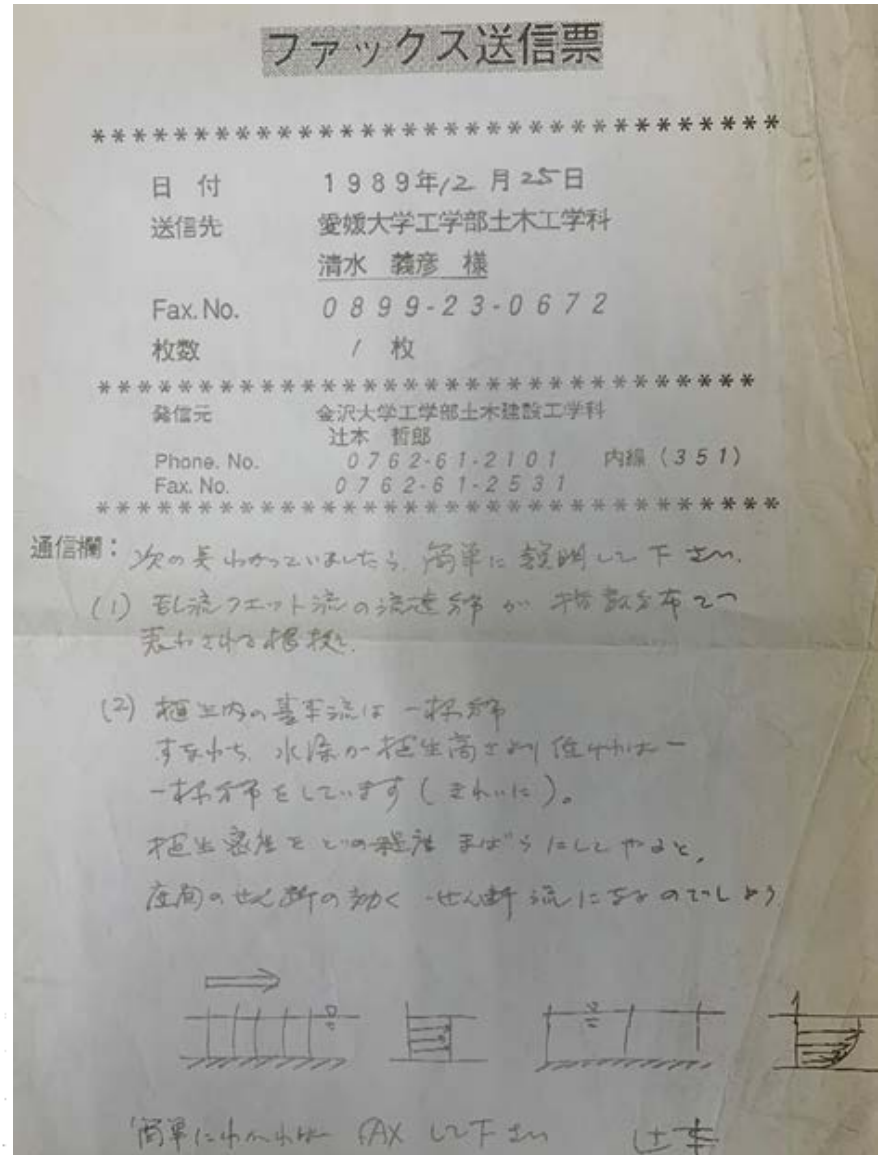 ファックス送信票
**********************************
日 付 1989年12月25日
送信先 愛媛大学工学部土木工学科
清水 義彦 様
Fax. No. 0899-23-0672
枚数 1 枚
*********************************
発信元 金沢大学工学部土木建設工学科
辻本 哲郎
Phone. No. 0762-61-2101 内線 (351)
Fax. No. 0762-61-2531
**********************************
通信欄: 次の点わかっていましたら, 簡単に説明して下さい.
(1) 乱流フェット流の流速分布が 指数分布で
表わされる根拠.
(2) 植生内の基本流は 一様分布
すなわち, 水深が植生高さより低ければ
一様分布をしています (きれいに)。
植生密度をどの程度 まばらにしてやると,
底面のせん断の効く せん断流になるのでしょう
簡単にわかれば FAX して下さい 辻本